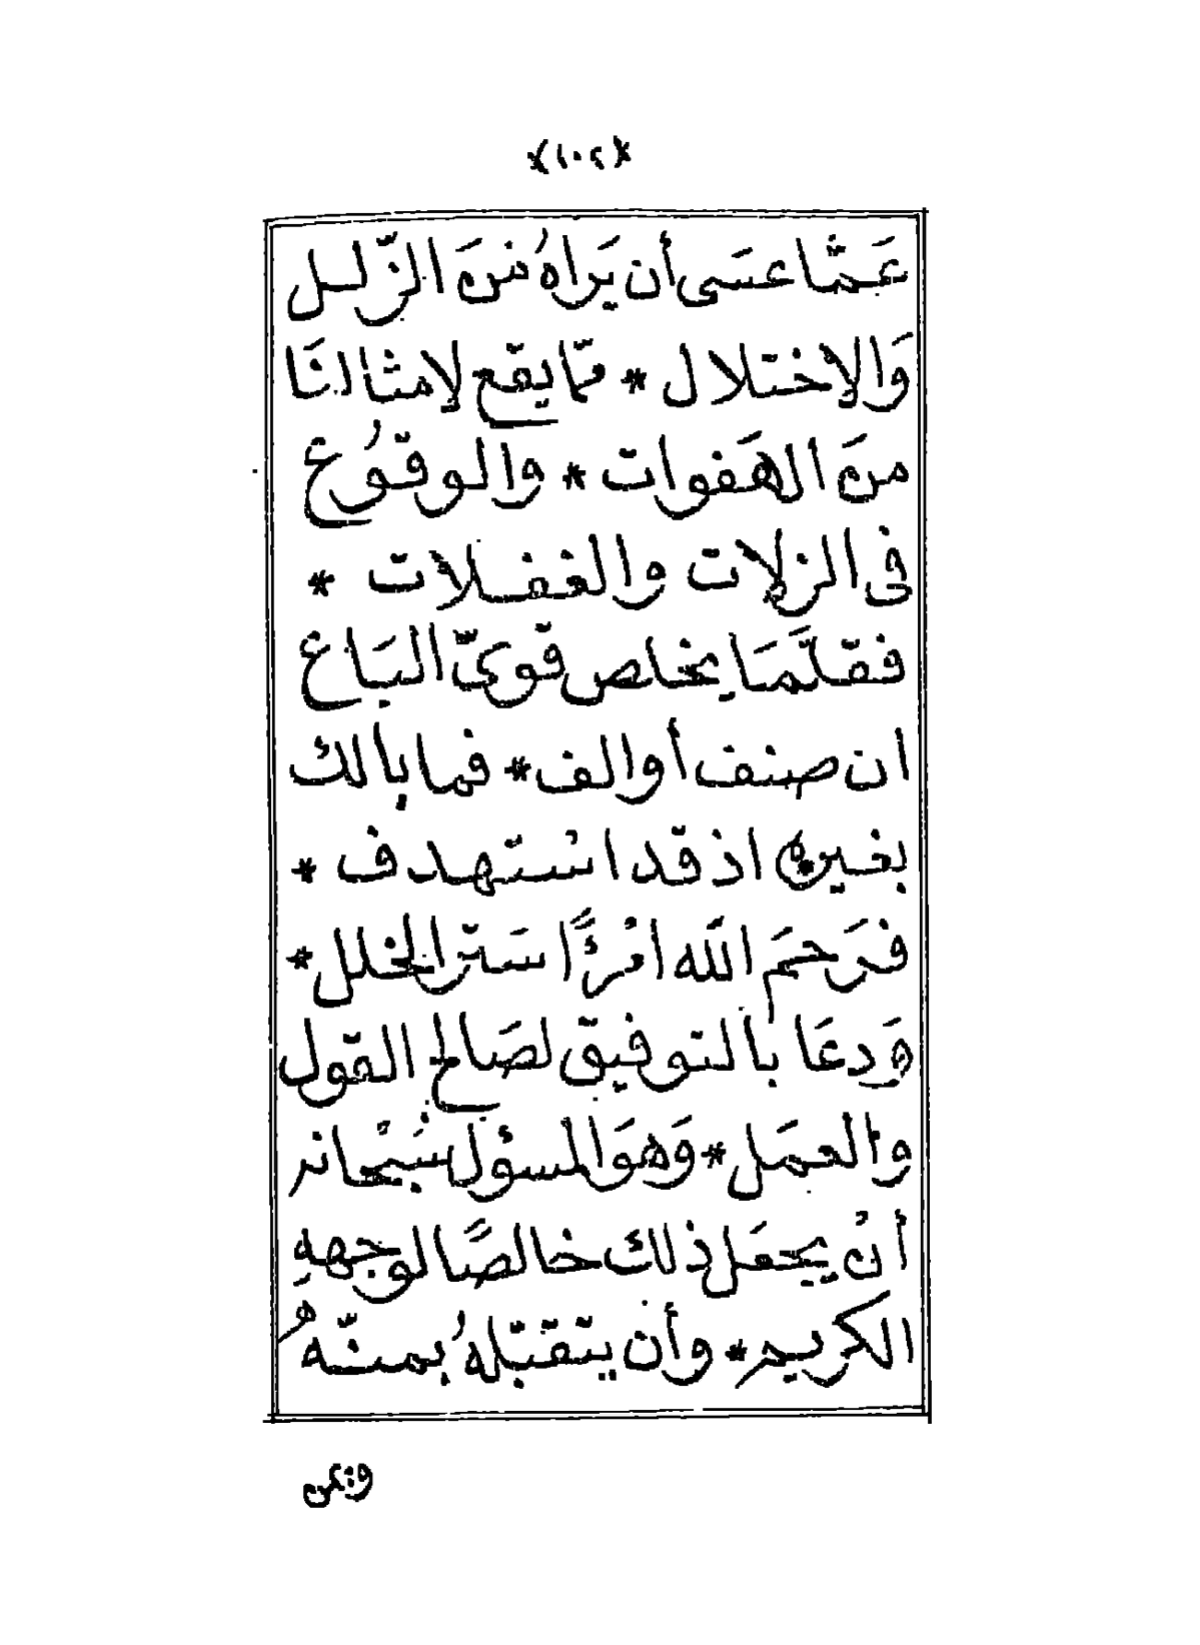 *(١٠٢)*
عَمَّا عسَى أن يَراهُ منَ الزّلل
وَالإختلال * ممّا يقع لإمثالنَا
منَ الهَفوات * والوقوُع
فى الزلات والغفلات *
فقلَّمَا يخلص قوىّ البَاع
ان صنف أو الف * فما بالك
بغيره * اذ قد اسْتهدف *
فرَحمَ الله امْرًأ سَتر الخلل *
وَدعَا بالتوفيق لصَالح القول
والعمَل * وَهوَ المسؤل سُبْحانه
أنْ يجعَل ذلك خالصًا لوجههِ
الكريم * وأن يتقبّلهُ بمنّهُ
ويمن